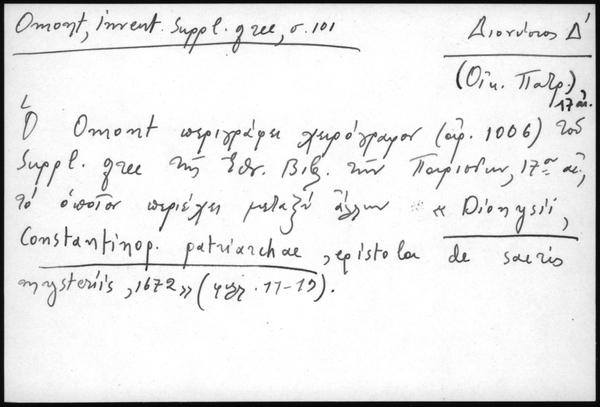 Omont, invent. Suppl. grec, σ. 101
Διονύσιος Δ΄
(Οἰκ. Πατρ.)
17 αἰ.
Ὁ Omont περιγράφει χειρόγραφον (ἀρ. 1006) τοῦ
Suppl. grec τῆς Ἐθν. Βιβ. τῶν Παρισίων, 17ου αἰ.,
τό ὁποῖον περιέχει μεταξύ ἄλλων « Dionysii,
Constantinop. patriarchae, epistola de sacris
mysteriis, 1672 » (φυλ. 11-19).